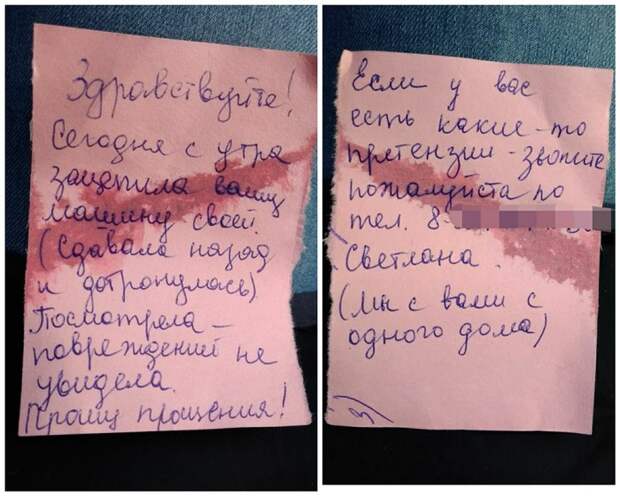 Здравствуйте!
Сегодня с утра
зацепила вашу
машину своей.
(Сдавала назад
и дотронулась)
Посмотрела –
повреждений не
увидела.
Прошу прощения!
Если у вас
есть какие-то
претензии - звоните
пожалуйста по
тел. 8-
Светлана.
(Мы с вами с
одного дома)